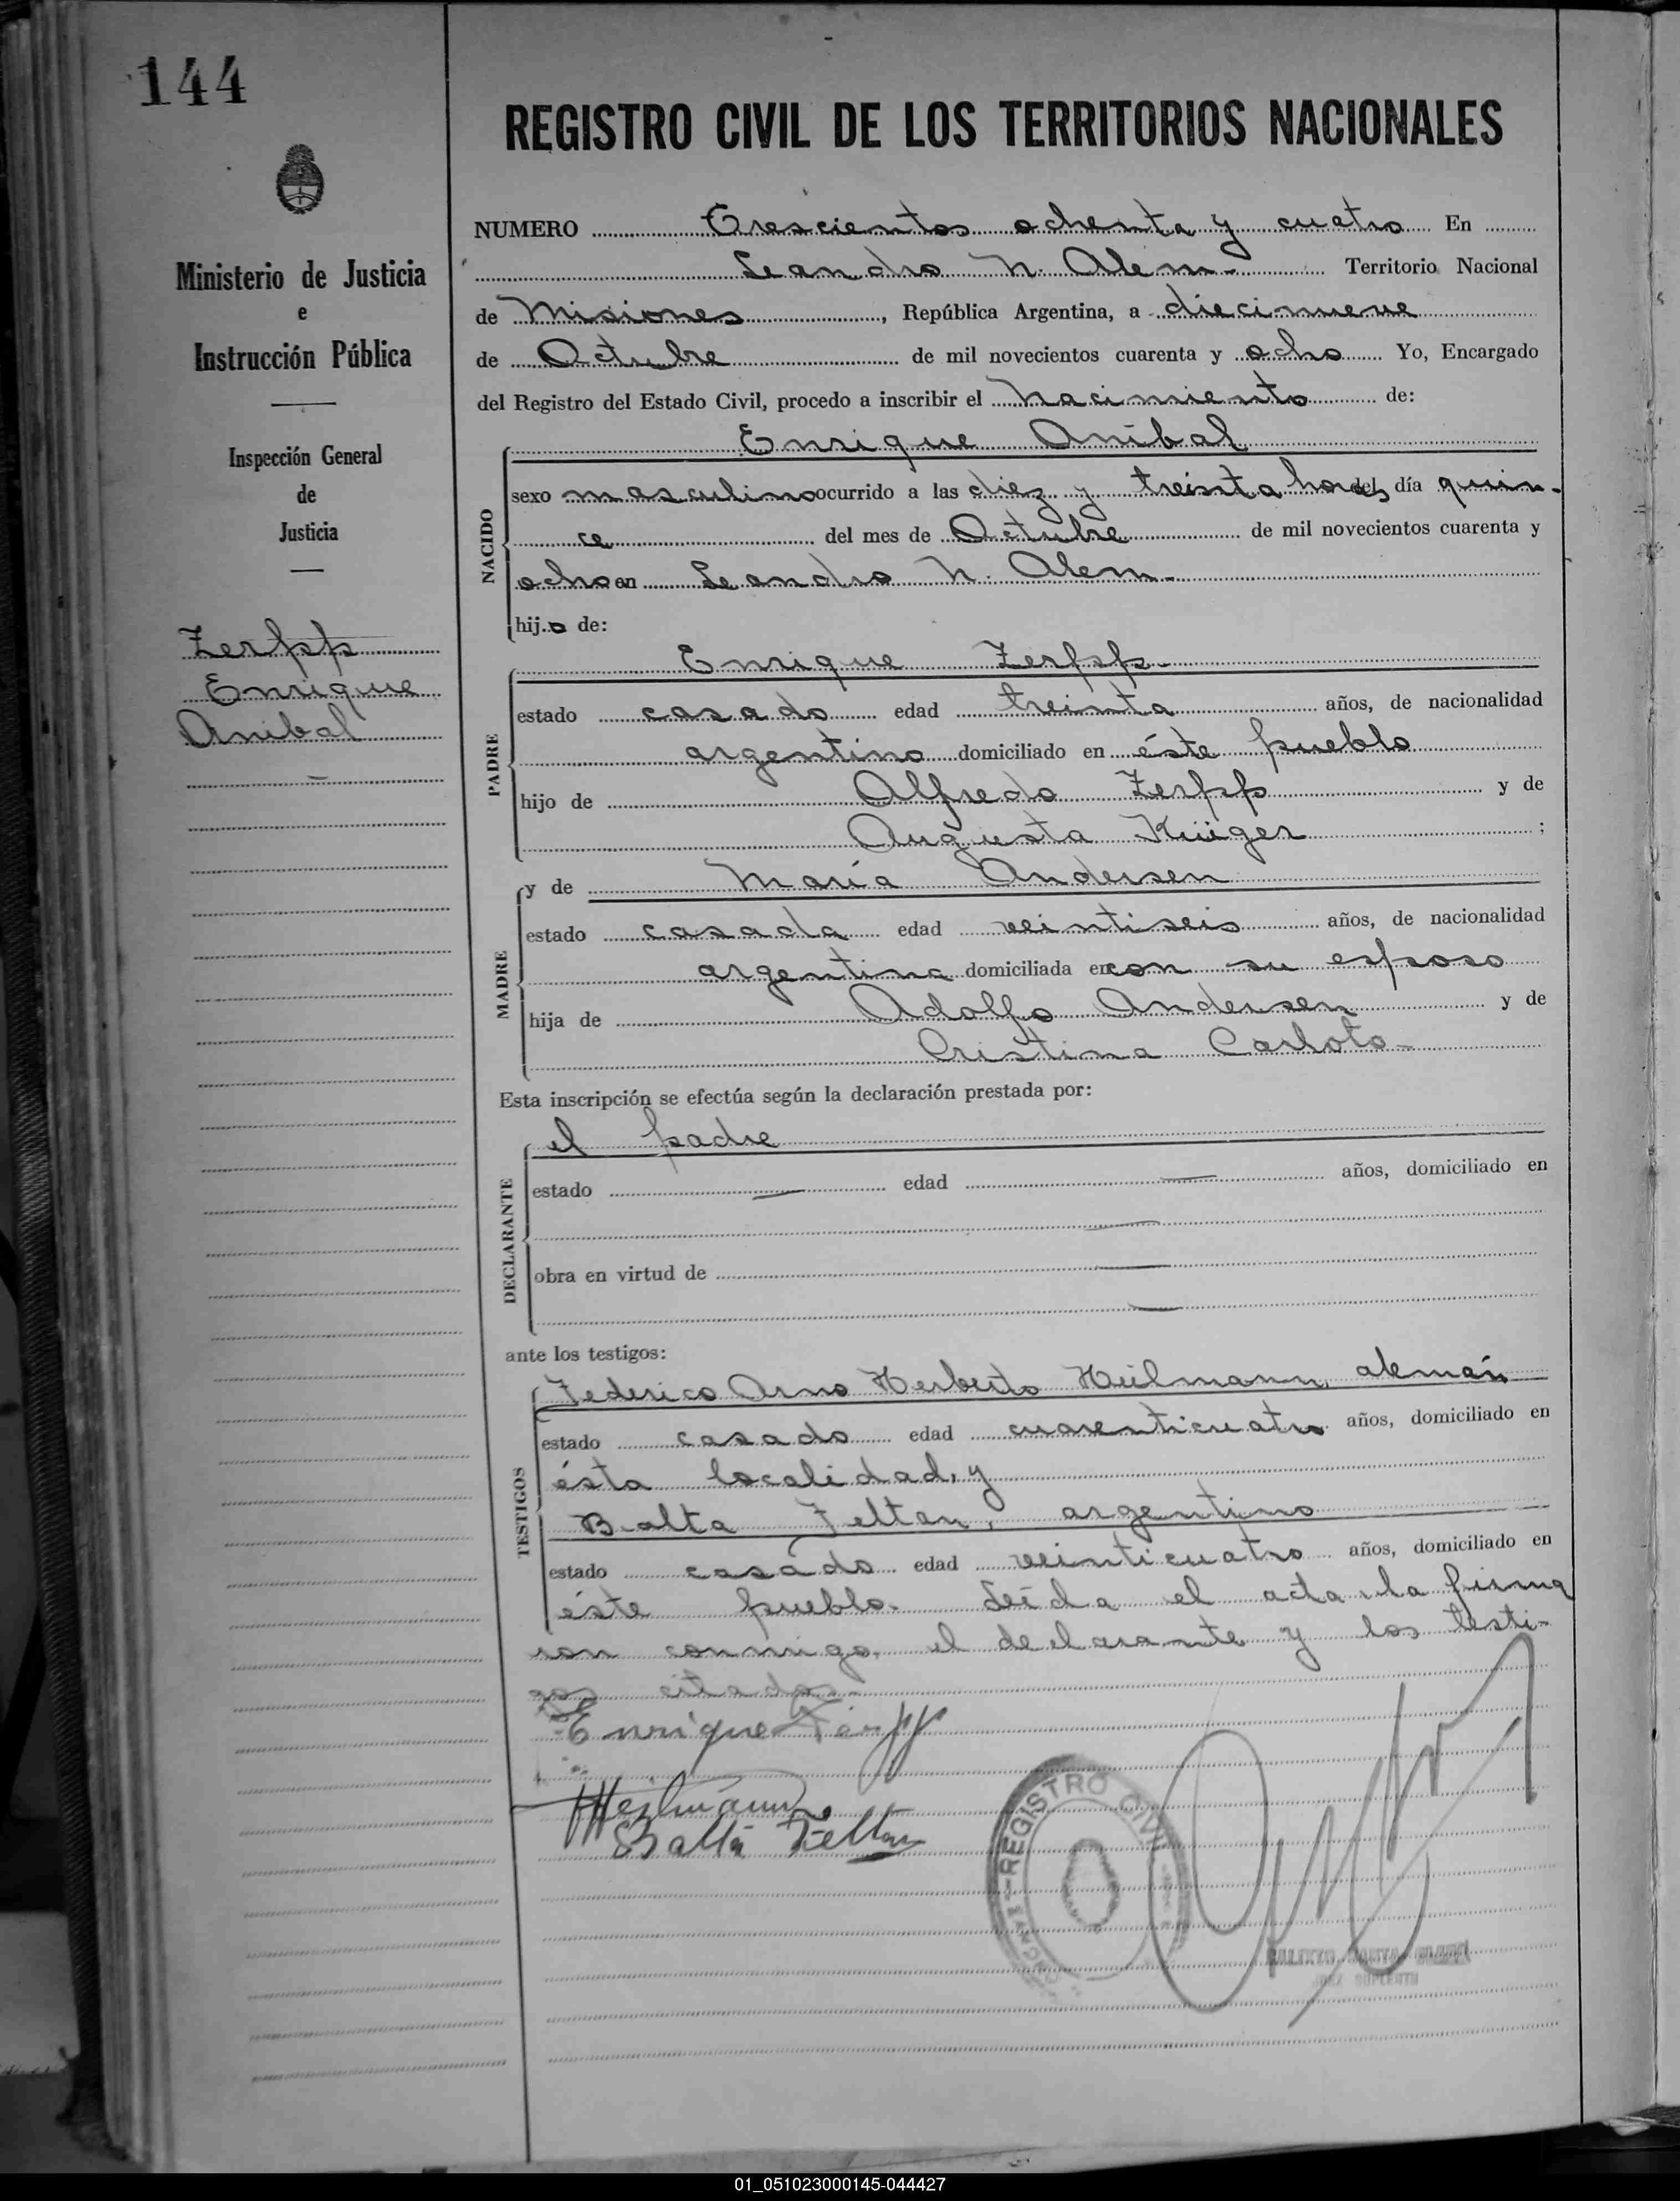 144
REGISTRO CIVIL DE LOS TERRITORIOS NACIONALES
Ministerio de Justicia
e
Instrucción Pública
Inspección General
de
Justicia
Zerpp
Enrique
Anibal
NUMERO Trescientos ochenta y cuatro En
Leandro N. Alem - Territorio Nacional
de Misiones, República Argentina, a diecinueve
de Octubre de mil novecientos cuarenta y ocho Yo, Encargado
del Registro del Estado Civil, procedo a inscribir el nacimiento de:
Enrique Anibal
NACIDO
sexo masculino ocurrido a las diez y treinta horas del día quin-
ce del mes de Octubre de mil novecientos cuarenta y
ocho en Leandro N. Alem -
hijo de:
PADRE
Enrique Zerpp -
estado casado edad treinta años, de nacionalidad
argentino domiciliado en éste pueblo
hijo de Alfredo Zerpp y de
Augusta Krüger ;
MADRE
y de María Andersen
estado casada edad veintiseis años, de nacionalidad
argentina domiciliada en con su esposo
hija de Adolfo Andersen y de
Cristina Carloto -
Esta inscripción se efectúa según la declaración prestada por:
DECLARANTE
el padre
estado — edad — años, domiciliado en
—
obra en virtud de —
—
ante los testigos:
TESTIGOS
Federico Arno Herberto Heilmann, alemán
estado casado edad cuarenticuatro años, domiciliado en
ésta localidad, y
Balta Feltan, argentino
estado casado edad veinticuatro años, domiciliado en
éste pueblo. Leída el acta, la firma
ron conmigo, el declarante y los testi-
gos citados -
Enrique Zerpp
HHeilmann
Balta Feltan
REGISTRO CIVIL
SUPLENTE
01_051023000145-044427